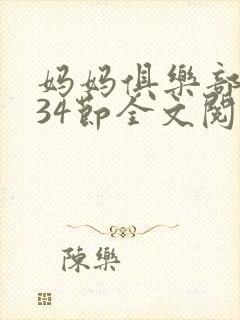 妈妈俱樂部
34節全文閱
陳樂